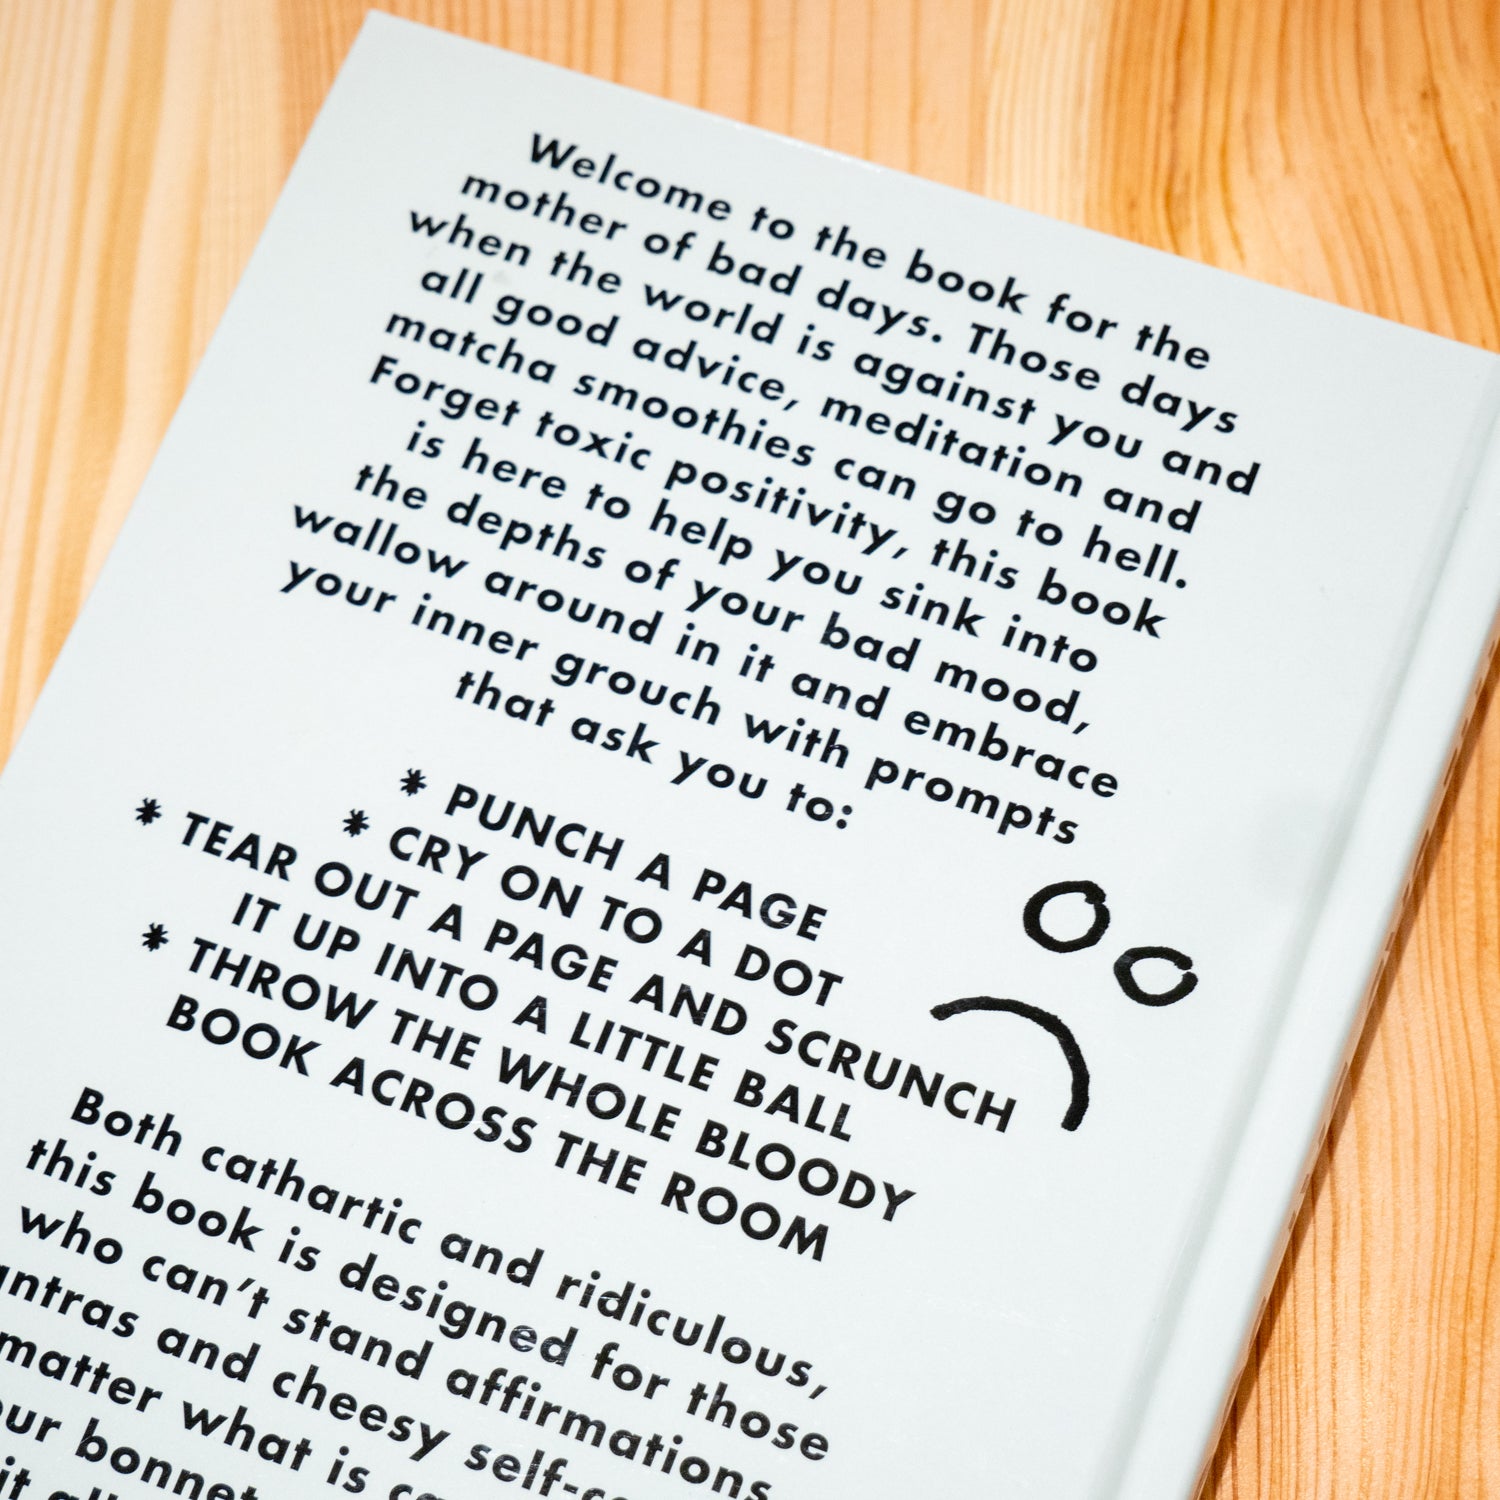 Welcome to the book for the
mother of bad days. Those days
when the world is against you and
all good advice, meditation and
matcha smoothies can go to hell.
Forget toxic positivity, this book
is here to help you sink into
the depths of your bad mood,
wallow around in it and embrace
your inner grouch with prompts
that ask you to:
* PUNCH A PAGE
* CRY ON TO A DOT
* TEAR OUT A PAGE AND SCRUNCH
IT UP INTO A LITTLE BALL
* THROW THE WHOLE BLOODY
BOOK ACROSS THE ROOM
Both cathartic and ridiculous,
this book is designed for those
who can't stand affirmations
and cheesy
matter what is
bonnet
it